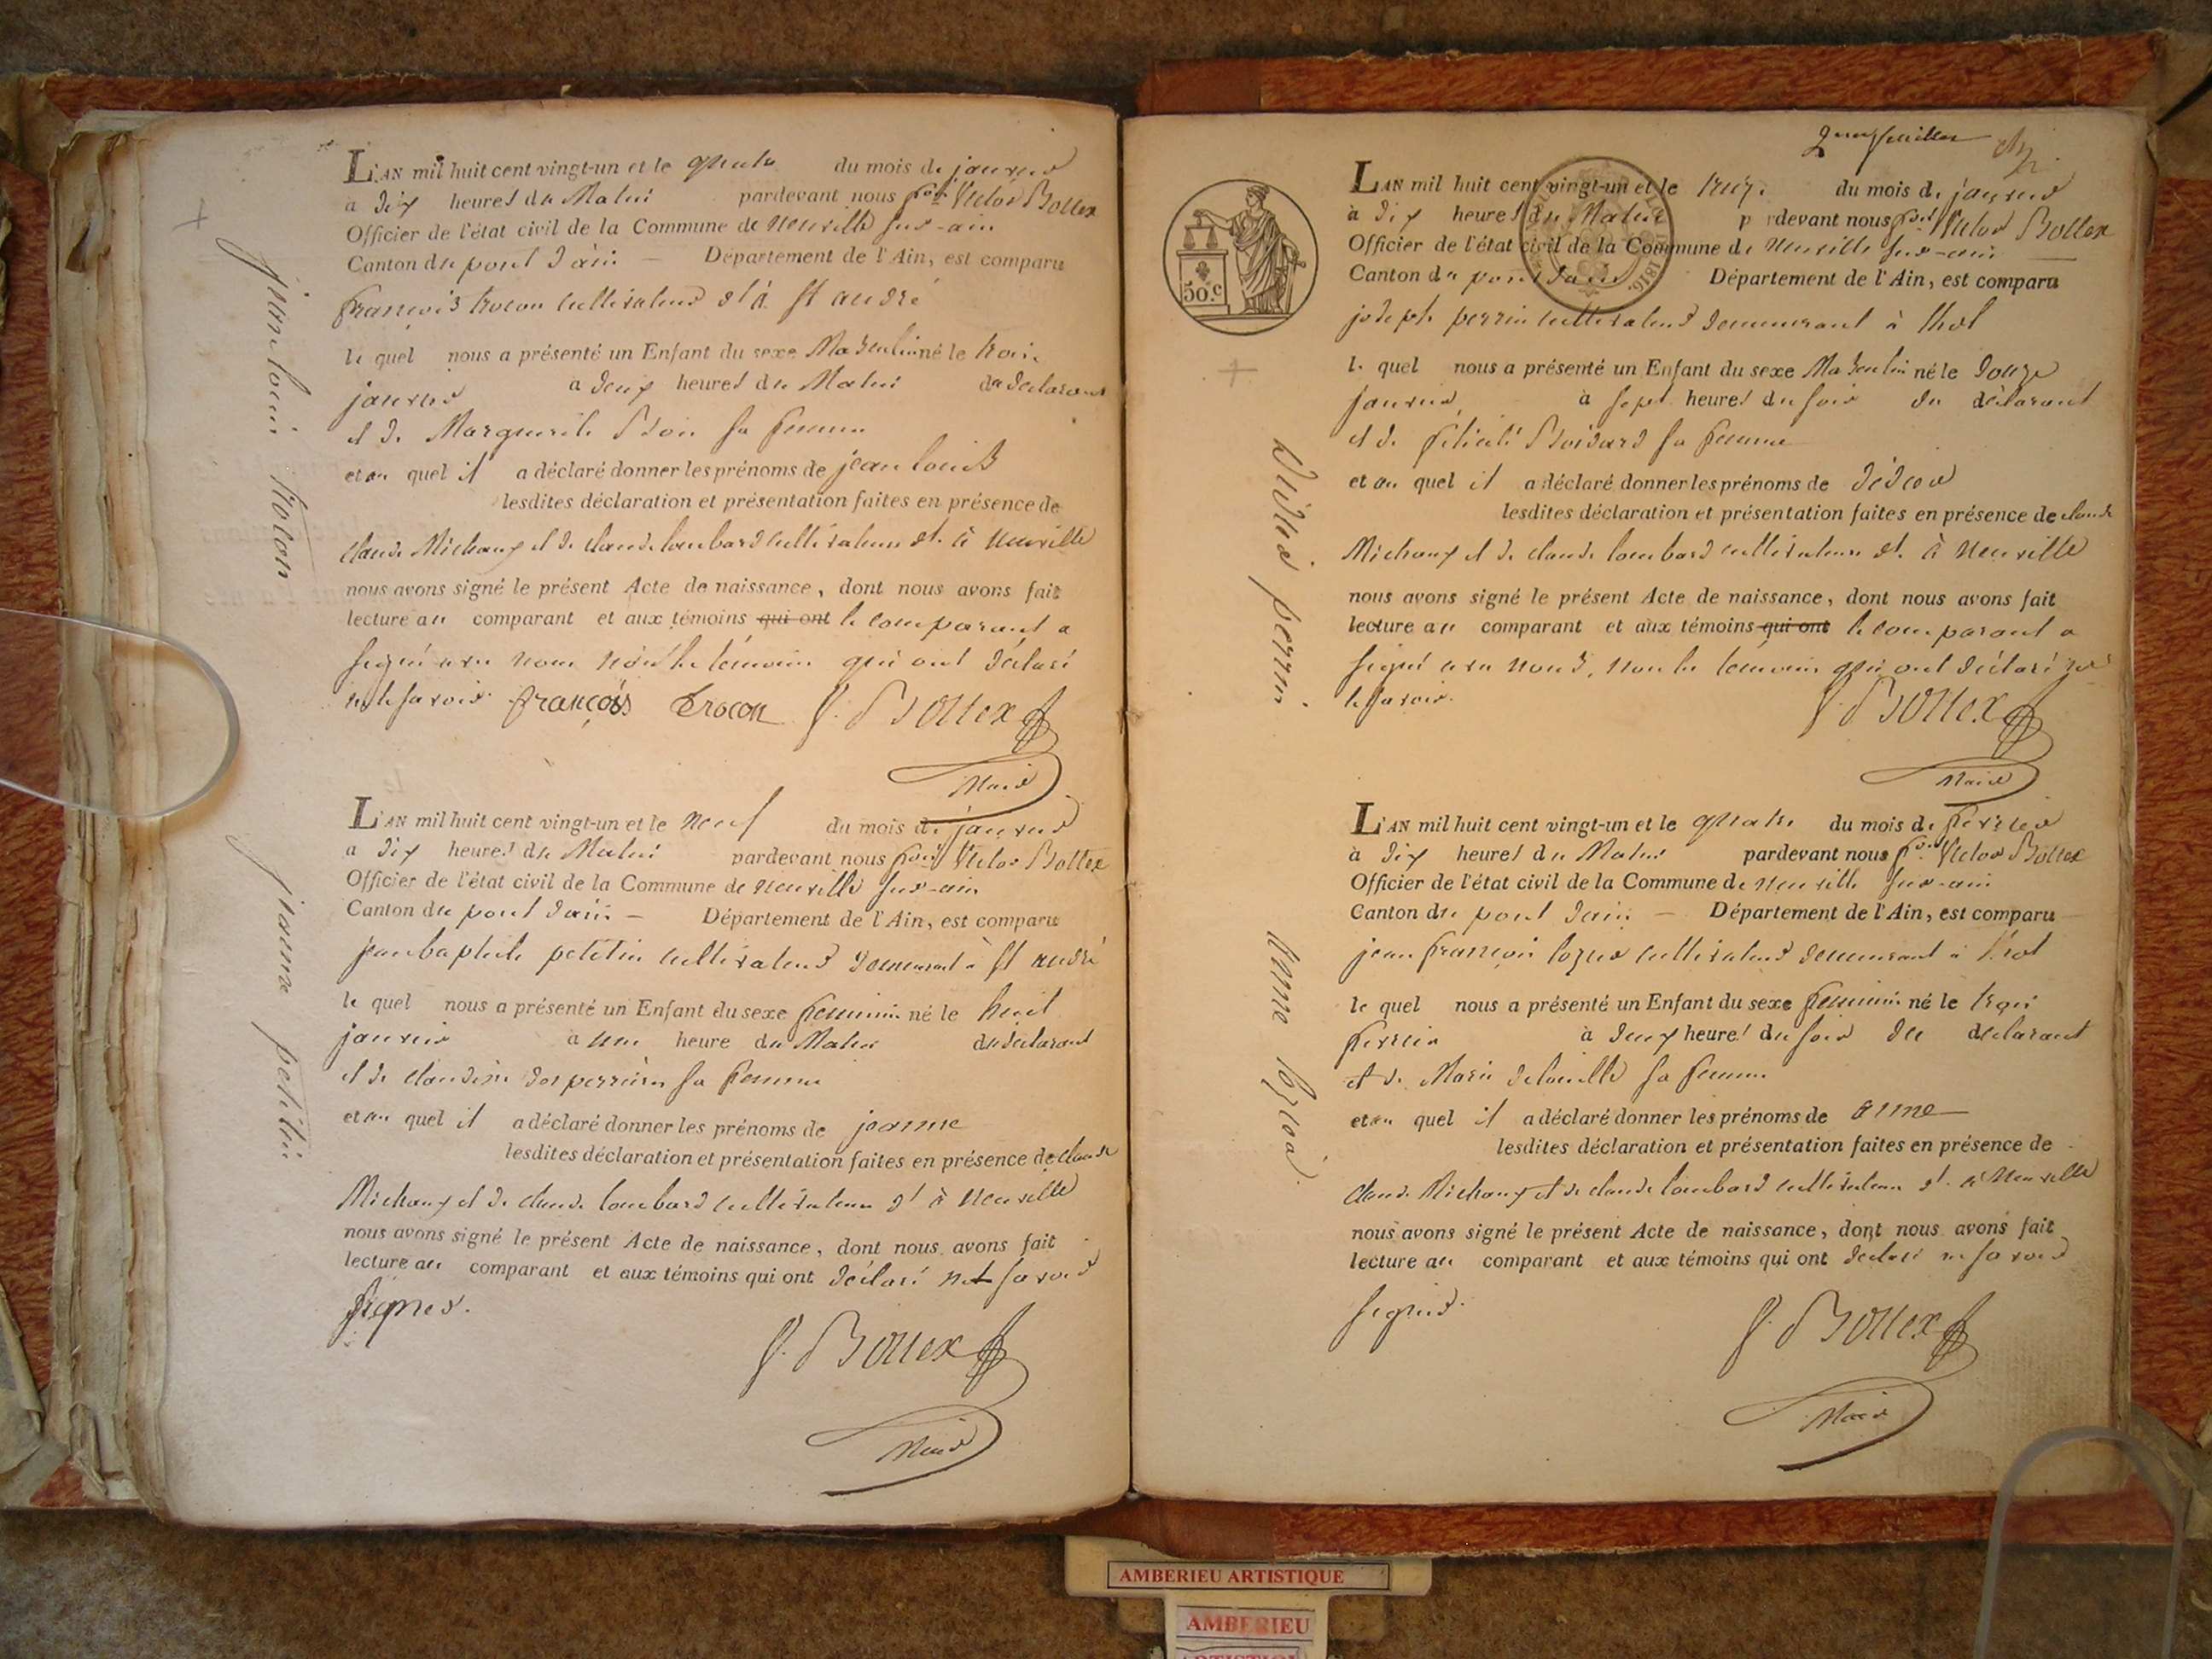 L'AN mil huit cent vingt-un et le quatre du mois de janvier
à dix heures du Matin pardevant nous Victor Bottex
Officier de l'état civil de la Commune de Neuville sur-ain
Canton du pont d'ain — Département de l'Ain, est comparu
françois trocon cultivateur dt à St andré
le quel nous a présenté un Enfant du sexe Masculin né le trois
janvier à deux heures du Matin du déclarant
et de Marguerite sa femme
et au quel il a déclaré donner les prénoms de jean louis
lesdites déclaration et présentation faites en présence de
claude Michaux et de claude lombard cultivateurs dt à Neuville
nous avons signé le présent Acte de naissance, dont nous avons fait
lecture au comparant et aux témoins qui ont le comparant a
signé avec nous non les témoins qui ont déclaré
ne le savoir. françois trocon Bottex
Maire
jean louis trocon
L'AN mil huit cent vingt-un et le neuf du mois de janvier
à dix heures du Matin pardevant nous Victor Bottex
Officier de l'état civil de la Commune de neuville sur-ain
Canton du pont d'ain — Département de l'Ain, est comparu
jean baptiste petitin cultivateur demeurant à St andré
le quel nous a présenté un Enfant du sexe feminin né le huit
janvier à une heure du Matin du déclarant
et de claudine desperrieres sa femme
et au quel il a déclaré donner les prénoms de jeanne
lesdites déclaration et présentation faites en présence de claude
Michaux et de claude lombard cultivateurs dt à Neuville
nous avons signé le présent Acte de naissance, dont nous avons fait
lecture au comparant et aux témoins qui ont déclaré ne savoir
signer.
Bottex
Maire
jeanne petitin
feuillet
50.c
1816.
L'AN mil huit cent vingt-un et le treize du mois de janvier
à dix heures du Matin pardevant nous Victor Bottex
Officier de l'état civil de la Commune de Neuville sur-ain
Canton du pont d'ain Département de l'Ain, est comparu
joseph perrin cultivateur demeurant à thol
le quel nous a présenté un Enfant du sexe Masculin né le douze
janvier à sept heures du soir du déclarant
et de felicité Boisard sa femme
et au quel il a déclaré donner les prénoms de didier
lesdites déclaration et présentation faites en présence de claude
Michaux et de claude lombard cultivateurs dt à Neuville
nous avons signé le présent Acte de naissance, dont nous avons fait
lecture au comparant et aux témoins qui ont le comparant a
signé avec nous, non les témoins qui ont déclaré ne
le savoir.
Bottex
Maire
Didier perrin
L'AN mil huit cent vingt-un et le quatre du mois de fevrier
à dix heures du Matin pardevant nous Victor Bottex
Officier de l'état civil de la Commune de neuville sur-ain
Canton du pont d'ain — Département de l'Ain, est comparu
jean françois lozier cultivateur demeurant à thol
le quel nous a présenté un Enfant du sexe feminin né le trois
fevrier à deux heures du soir du déclarant
et de Marie sa femme
et au quel il a déclaré donner les prénoms de anne
lesdites déclaration et présentation faites en présence de
claude Michaux et de claude lombard cultivateurs dt à Neuville
nous avons signé le présent Acte de naissance, dont nous avons fait
lecture au comparant et aux témoins qui ont déclaré ne savoir
signer.
Bottex
Maire
Anne lozier
AMBERIEU ARTISTIQUE
AMBERIEU
ARTISTIQUE